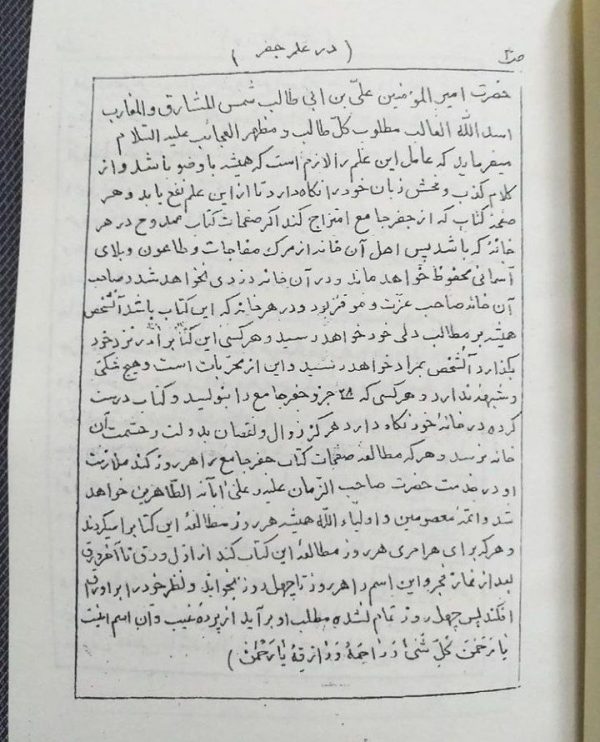 ( در علم جفر )
حضرت امیر المؤمنین علیّ بن ابی طالب شمس المشارق والمغارب
اسد الله الغالب مطلوب کلّ طالب و مظهر العجائب علیه السّلام
میفرماید که عامل این علم را لازم است که همیشه با وضو باشد و از
کلام کذب و فحش زبان خود را نگاه دارد تا از این علم نفع یابد و هر
صفحهٔ کتاب که از جفر جامع امتزاج کند اکر صفحات کتاب ممدوح در هر
خانهٔ که باشد پس اهل آن خانه از مرک مفاجات و طاعون و بلای
آسمانی محفوظ خواهد ماند و در آن خانه دزدی نخواهد شد و صاحب
آن خانه صاحب عزّت و موقر بود و در هر خانه که این کتاب باشد آنشخص
همیشه بر مطالب دلی خود خواهد رسید و هر کسی این کتاب را در نزد خود
بکذارد آنشخص بمراد خواهد رسید و این از مجرّبات است و هیچ شکّی
و شبهه ندارد و هر کسی که ۲۸ جزو جفر جامع را بنولید و کتاب درست
کرده در خانهٔ خود نکاه دارد هرکز زوال و نقصان بدولت و حشمت آن
خانه نرسد و هر که مطالعهٔ صفحات کتاب جفر جامع را هر روز کند ملازمت
او در خدمت حضرت صاحب الزّمان علیه و علی آبائه الطّاهرین خواهد
شد و ائمّهٔ معصومین و اولیاء الله همیشه هر روز مطالعهٔ این کتاب را میکردند
و هر که برای هر امری هر روز مطالعهٔ این کتاب کند از اوّل ورق تا آخر ورق
بعد از نماز فجر و این اسم را هر روز تا چهل روز بخواند و نظر خود را بر اوراق
افکند پس چهل روز تمام نشده مطلب او بر آید از پردهٔ غیب و آن اسم اینست
یا رَحْمٰنَ کُلِّ شَیْءٍ وَ رَاحِمَهُ وَ رَازِقَهُ یا رَحْمٰنُ )